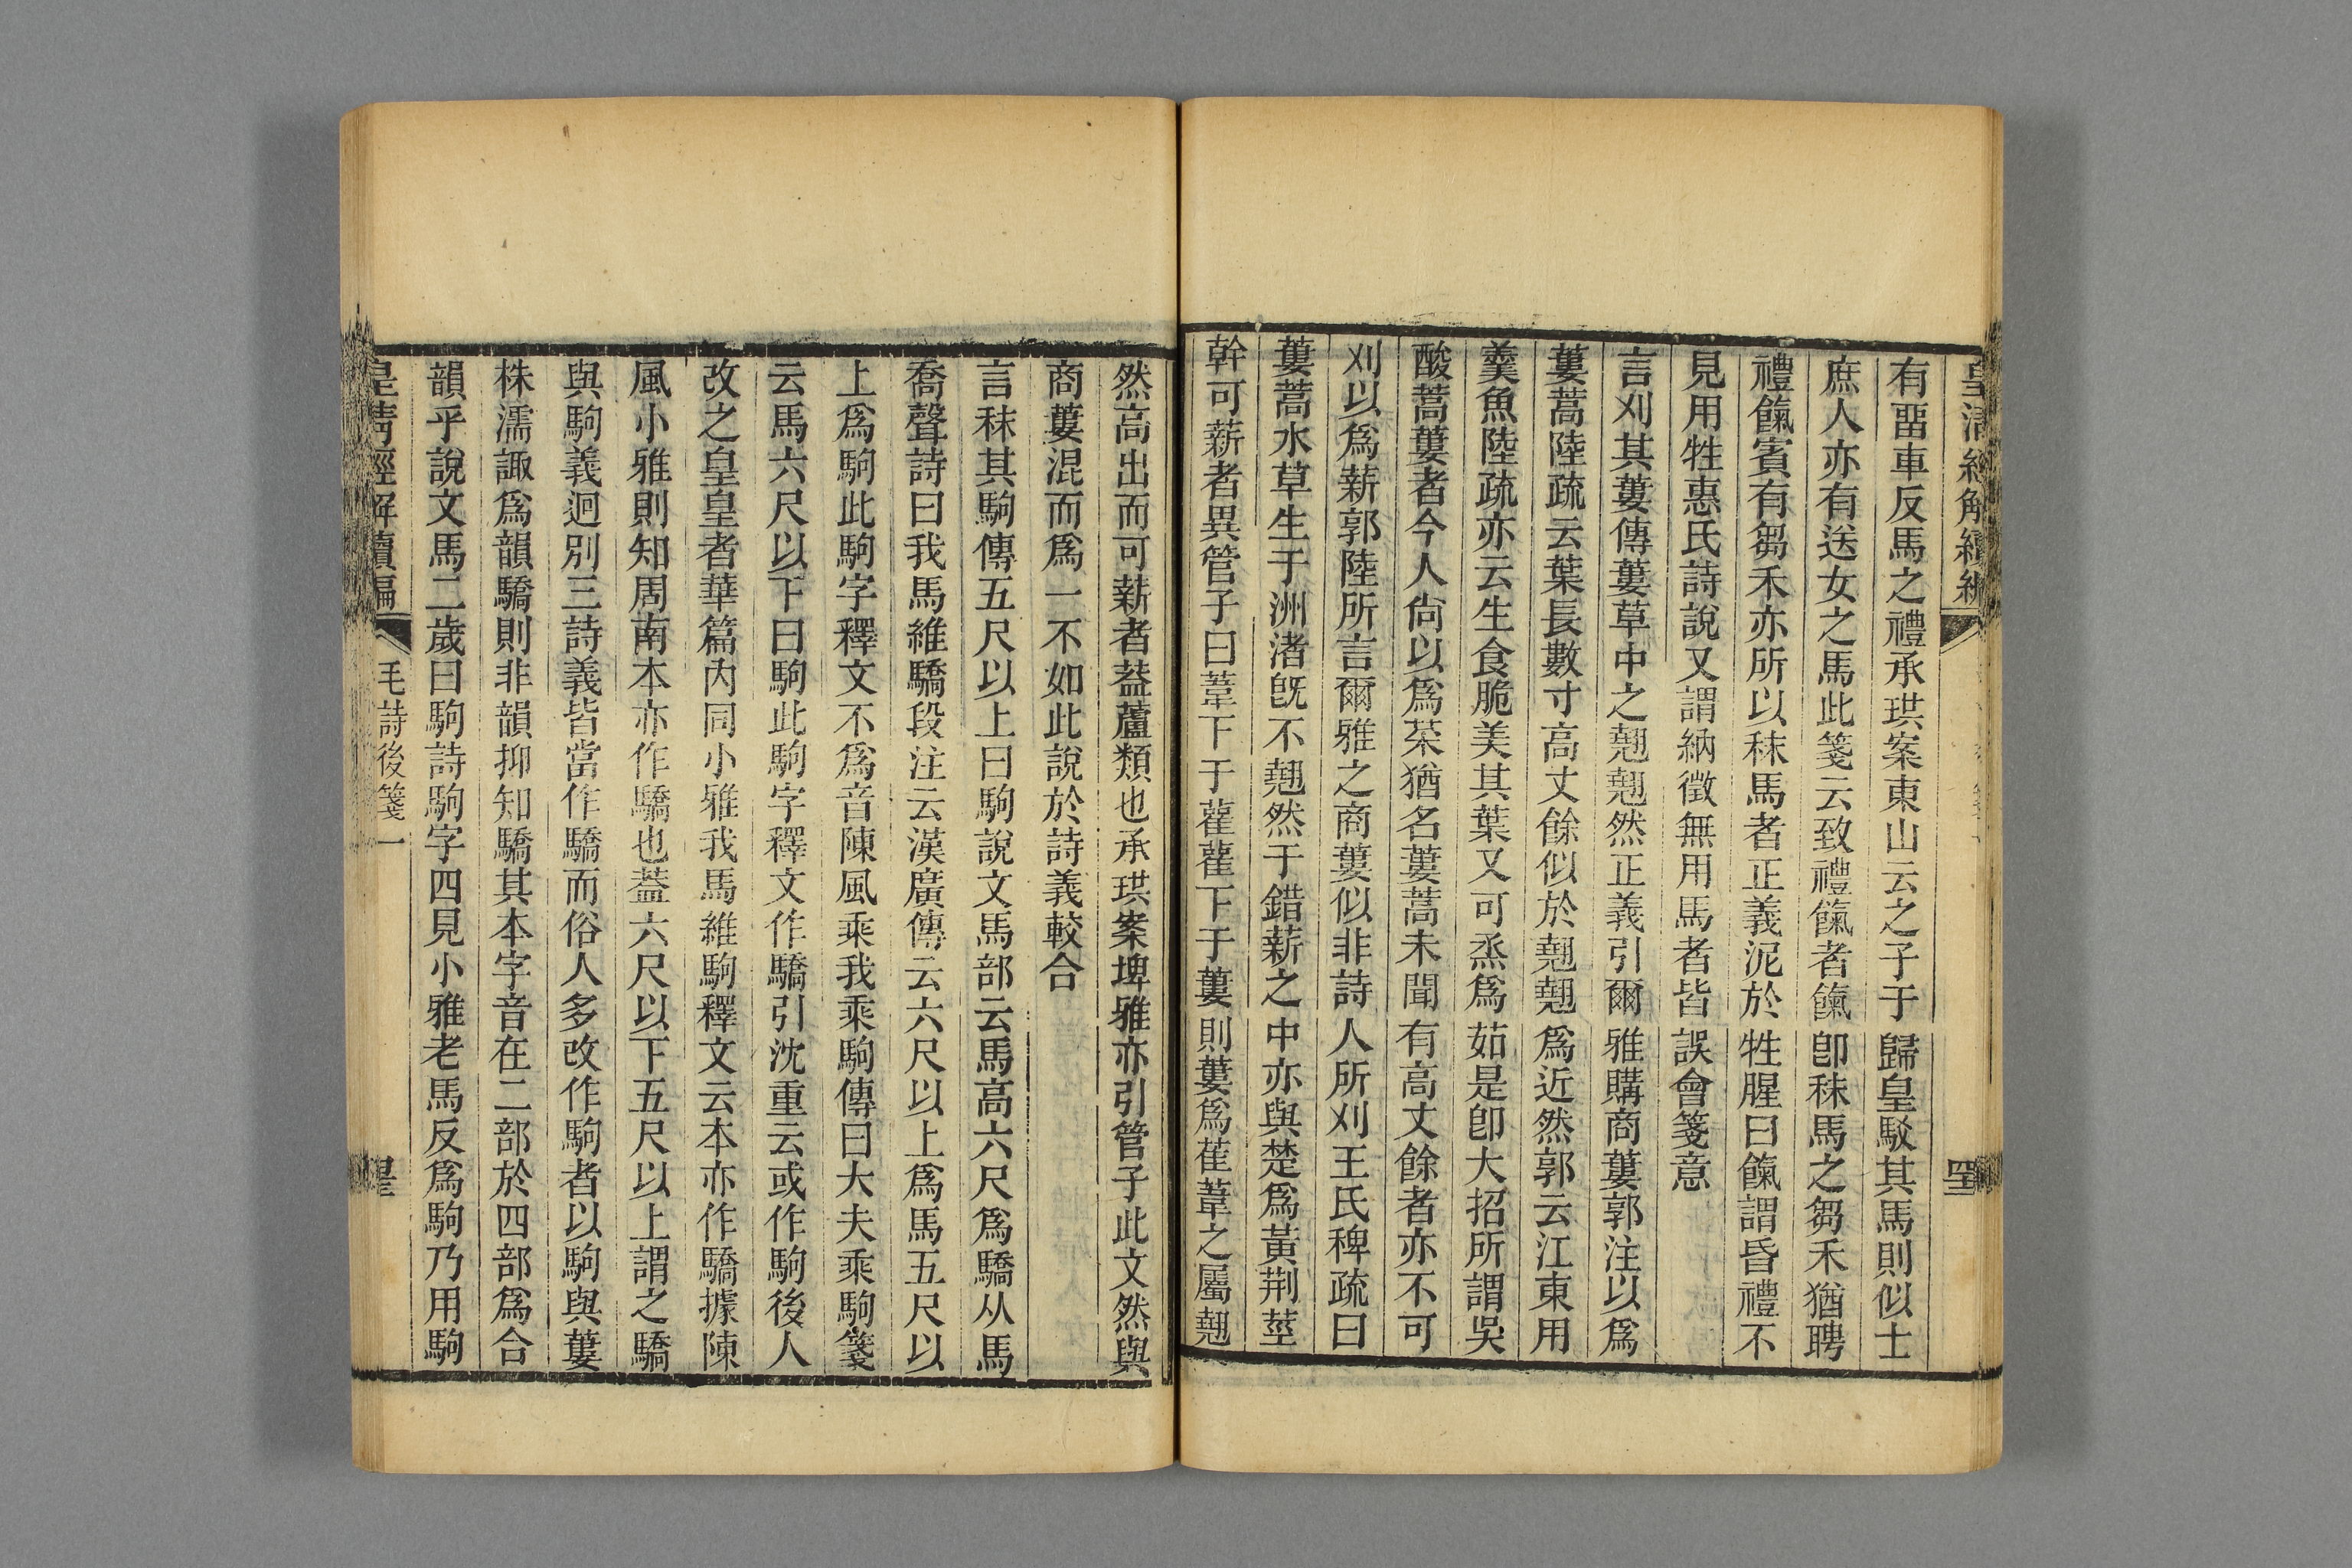 皇清經解續編
有畱車反馬之禮承珙案東山云之子于歸皇駁其馬則似士
庶人亦有送女之馬此箋云致禮餼者餼卽秣馬之芻禾猶聘
禮餼賓有芻禾亦所以秣馬者正義泥於牲腥曰餼謂昏禮不
見用牲惠氏詩說又謂納徵無用馬者皆誤會箋意
言刈其蔞傳蔞草中之翹翹然正義引爾雅購商蔞郭注以爲
蔞蒿陸疏云葉長數寸高丈餘似於翹翹爲近然郭云江東用
羹魚陸疏亦云生食脆美其葉又可烝爲茹是卽大招所謂吳
酸蒿蔞者今人尙以爲菜猶名蔞蒿未聞有高丈餘者亦不可
刈以爲薪郭陸所言爾雅之商蔞似非詩人所刈王氏稗疏曰
蔞蒿水草生于洲渚旣不翹然于錯薪之中亦與楚爲黃荆莖
幹可薪者異管子曰葦下于雚雚下于蔞則蔞爲萑葦之屬翹
然高出而可薪者葢蘆類也承珙案埤雅亦引管子此文然與
商蔞混而爲一不如此說於詩義較合
言秣其駒傳五尺以上曰駒說文馬部云馬高六尺爲驕从馬
喬聲詩曰我馬維驕段注云漢廣傳云六尺以上爲馬五尺以
上爲駒此駒字釋文不爲音陳風乘我乘駒傳曰大夫乘駒箋
云馬六尺以下曰駒此駒字釋文作驕引沈重云或作駒後人
改之皇皇者華篇內同小雅我馬維駒釋文云本亦作驕據陳
風小雅則知周南本亦作驕也葢六尺以下五尺以上謂之驕
與駒義迥別三詩義皆當作驕而俗人多改作駒者以駒與蔞
株濡諏爲韻驕則非韻抑知驕其本字音在二部於四部爲合
韻乎說文馬二歲曰駒詩駒字四見小雅老馬反爲駒乃用駒
皇清經解續編
毛詩後箋一